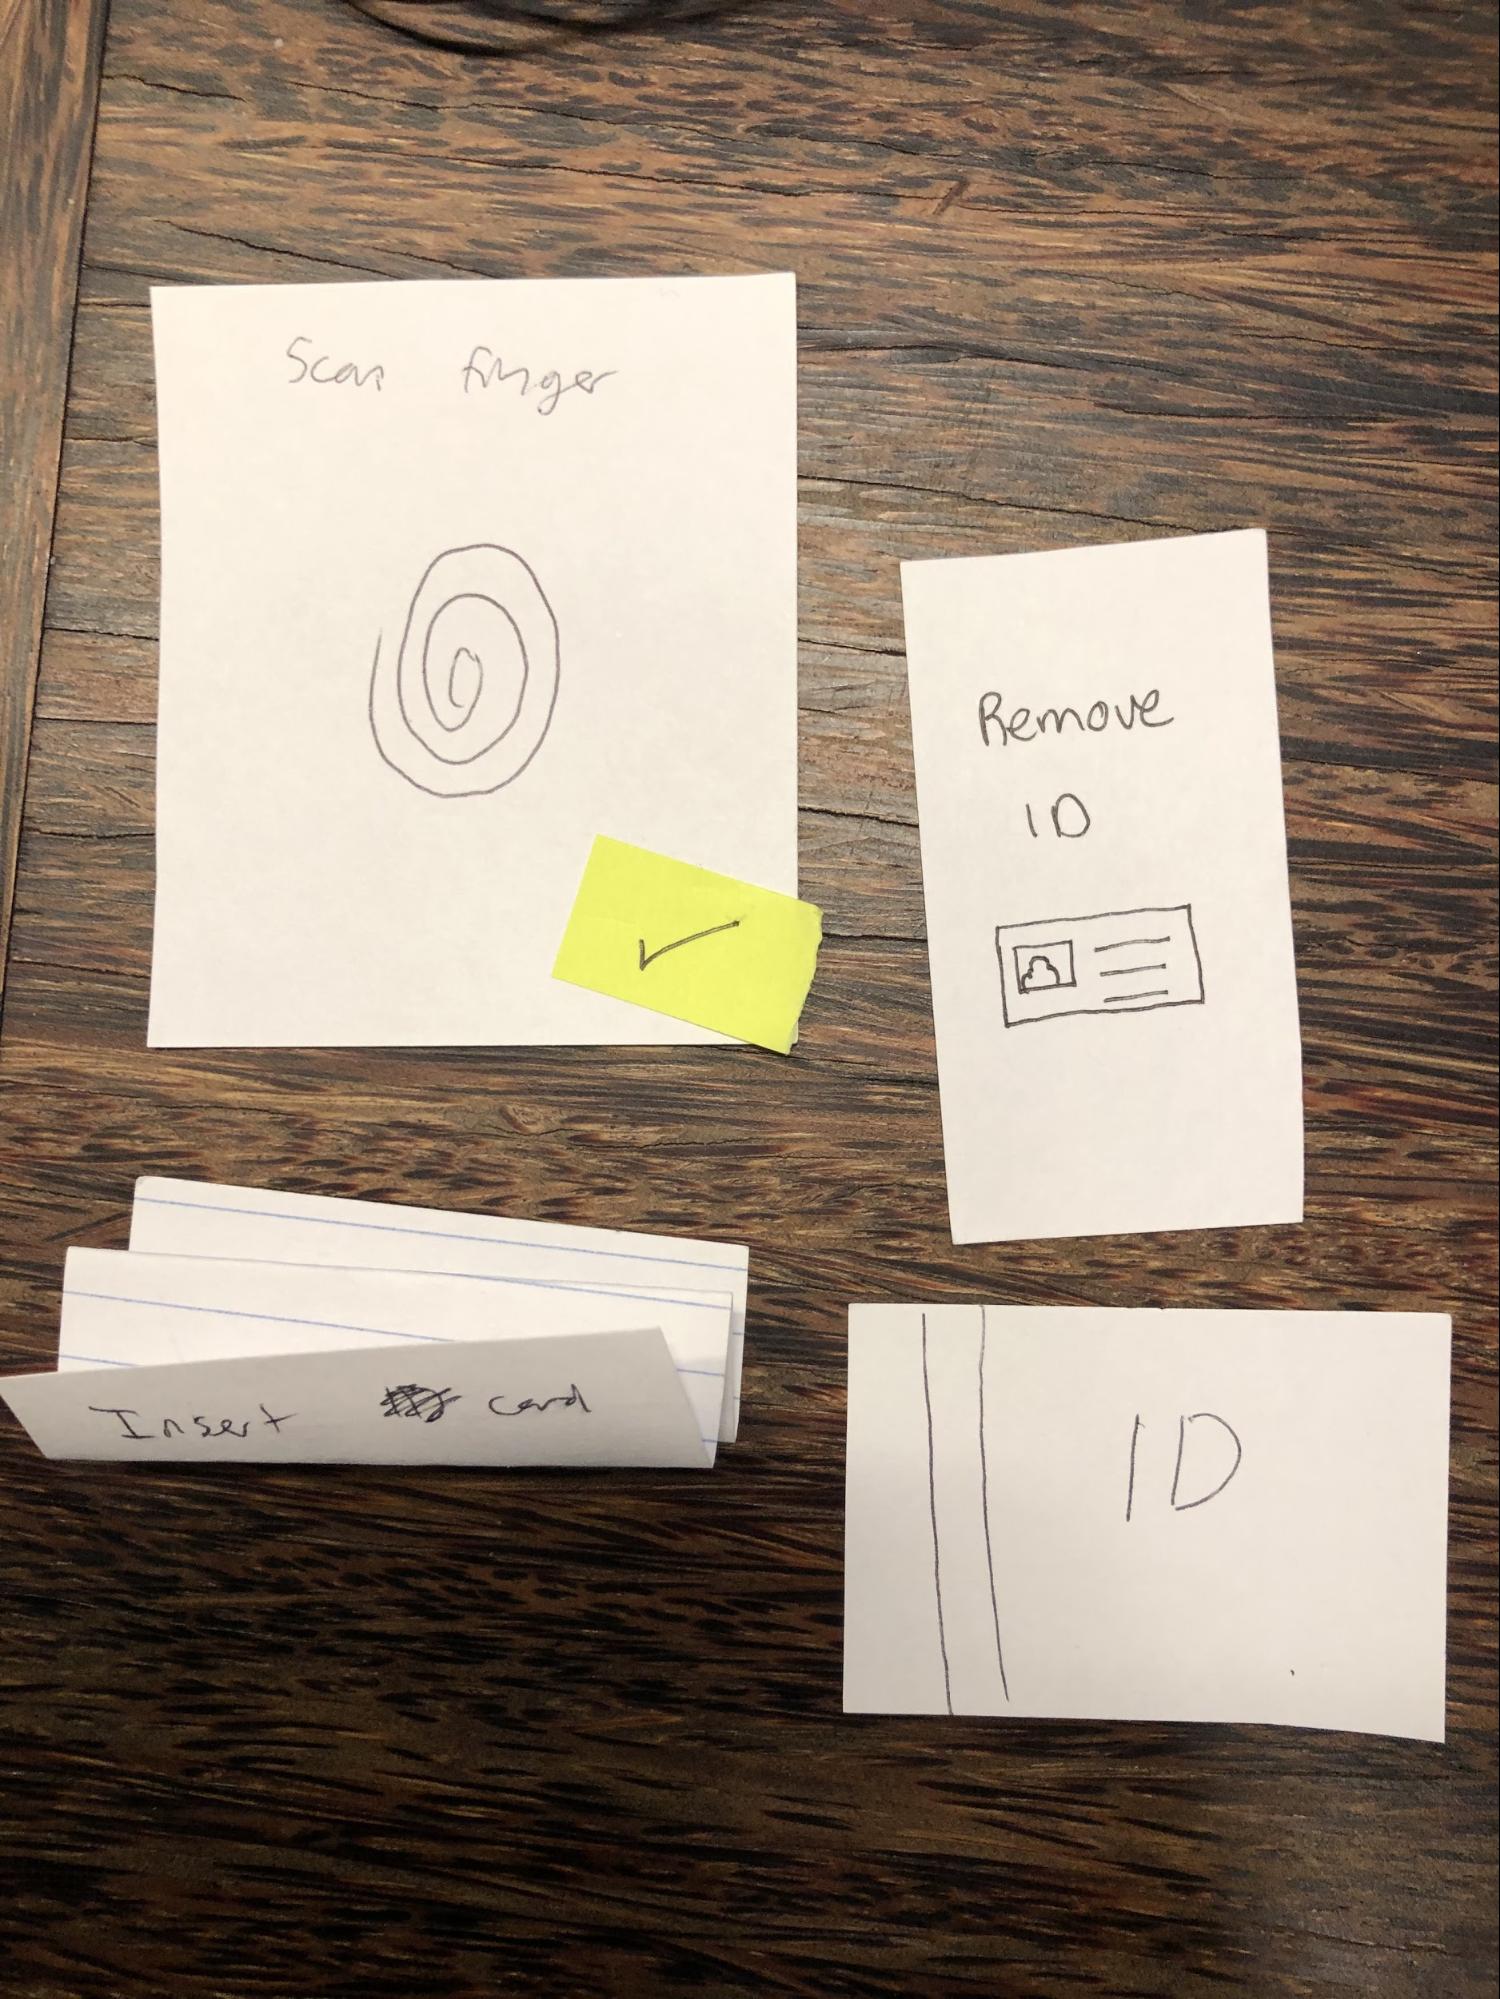 Scan finger
Remove
ID
Insert card
ID